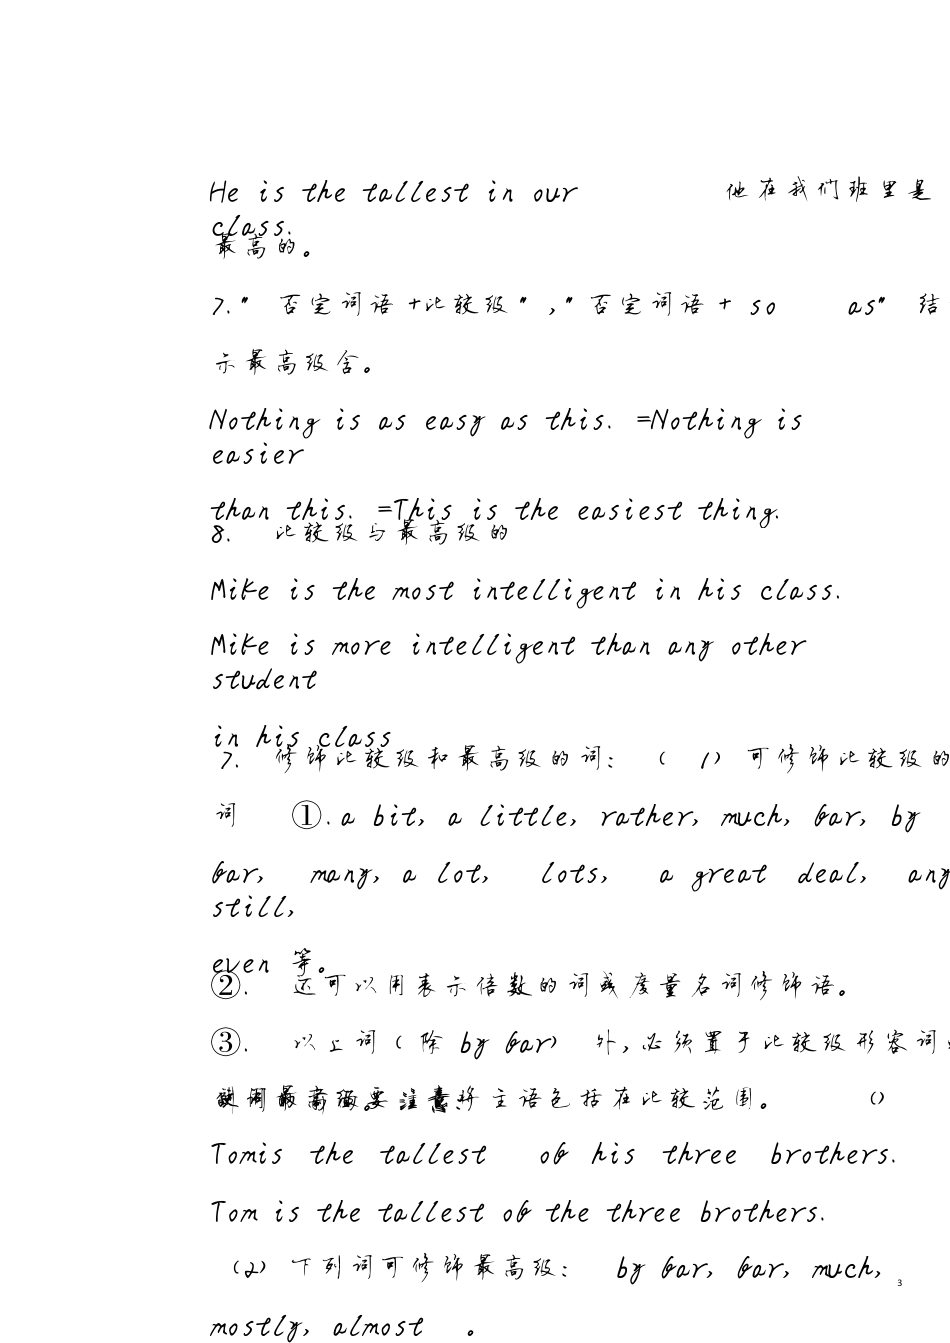 He is the tallest in our 他在我们班里是
class.
最高的。
7." 否定词语+比较级","否定词语+ so as" 结
示最高级含。
Nothing is as easy as this. =Nothing is
easier
than this. =This is the easiest thing.
8. 比较级与最高级的
Mike is the most intelligent in his class.
Mike is more intelligent than any other
student
in his class
7. 修饰比较级和最高级的词: ( 1) 可修饰比较级的
词 ①.a bit, a little, rather, much, far, by
far, many, a lot, lots, a great deal, any
still,
even 等。
②. 还可以用表示倍数的词或度量名词修饰语。
③. 以上词(除 by far) 外,必须置于比较级形容词
将主语包括在比较范围。 ()
Tomis the tallest of his three brothers.
Tom is the tallest of the three brothers.
(2) 下列词可修饰最高级: by far, far, much,
3
mostly, almost 。